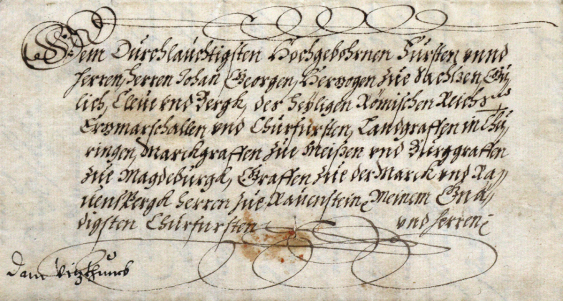 Dem Durchlauchtigsten Hochgebohrnen Fürsten vnnd
Herren, Herren Johan Georgen, Hertzogen zue Sachßen, Gü,
lich, Cleue vnd Bergk, des Heyligen Römischen Reichs
Ertzmarschallen vnd Churfürsten, Landgraffen in Thü,
ringen, Marckgraffen zue Meißen vnd Burggraffen
zue Magdeburgk, Graffen zue der Marck vnd Ra,
uensbergk Herren zue Rauenstein, Meinem Gnä,
digsten Churfürsten vnd Herren,